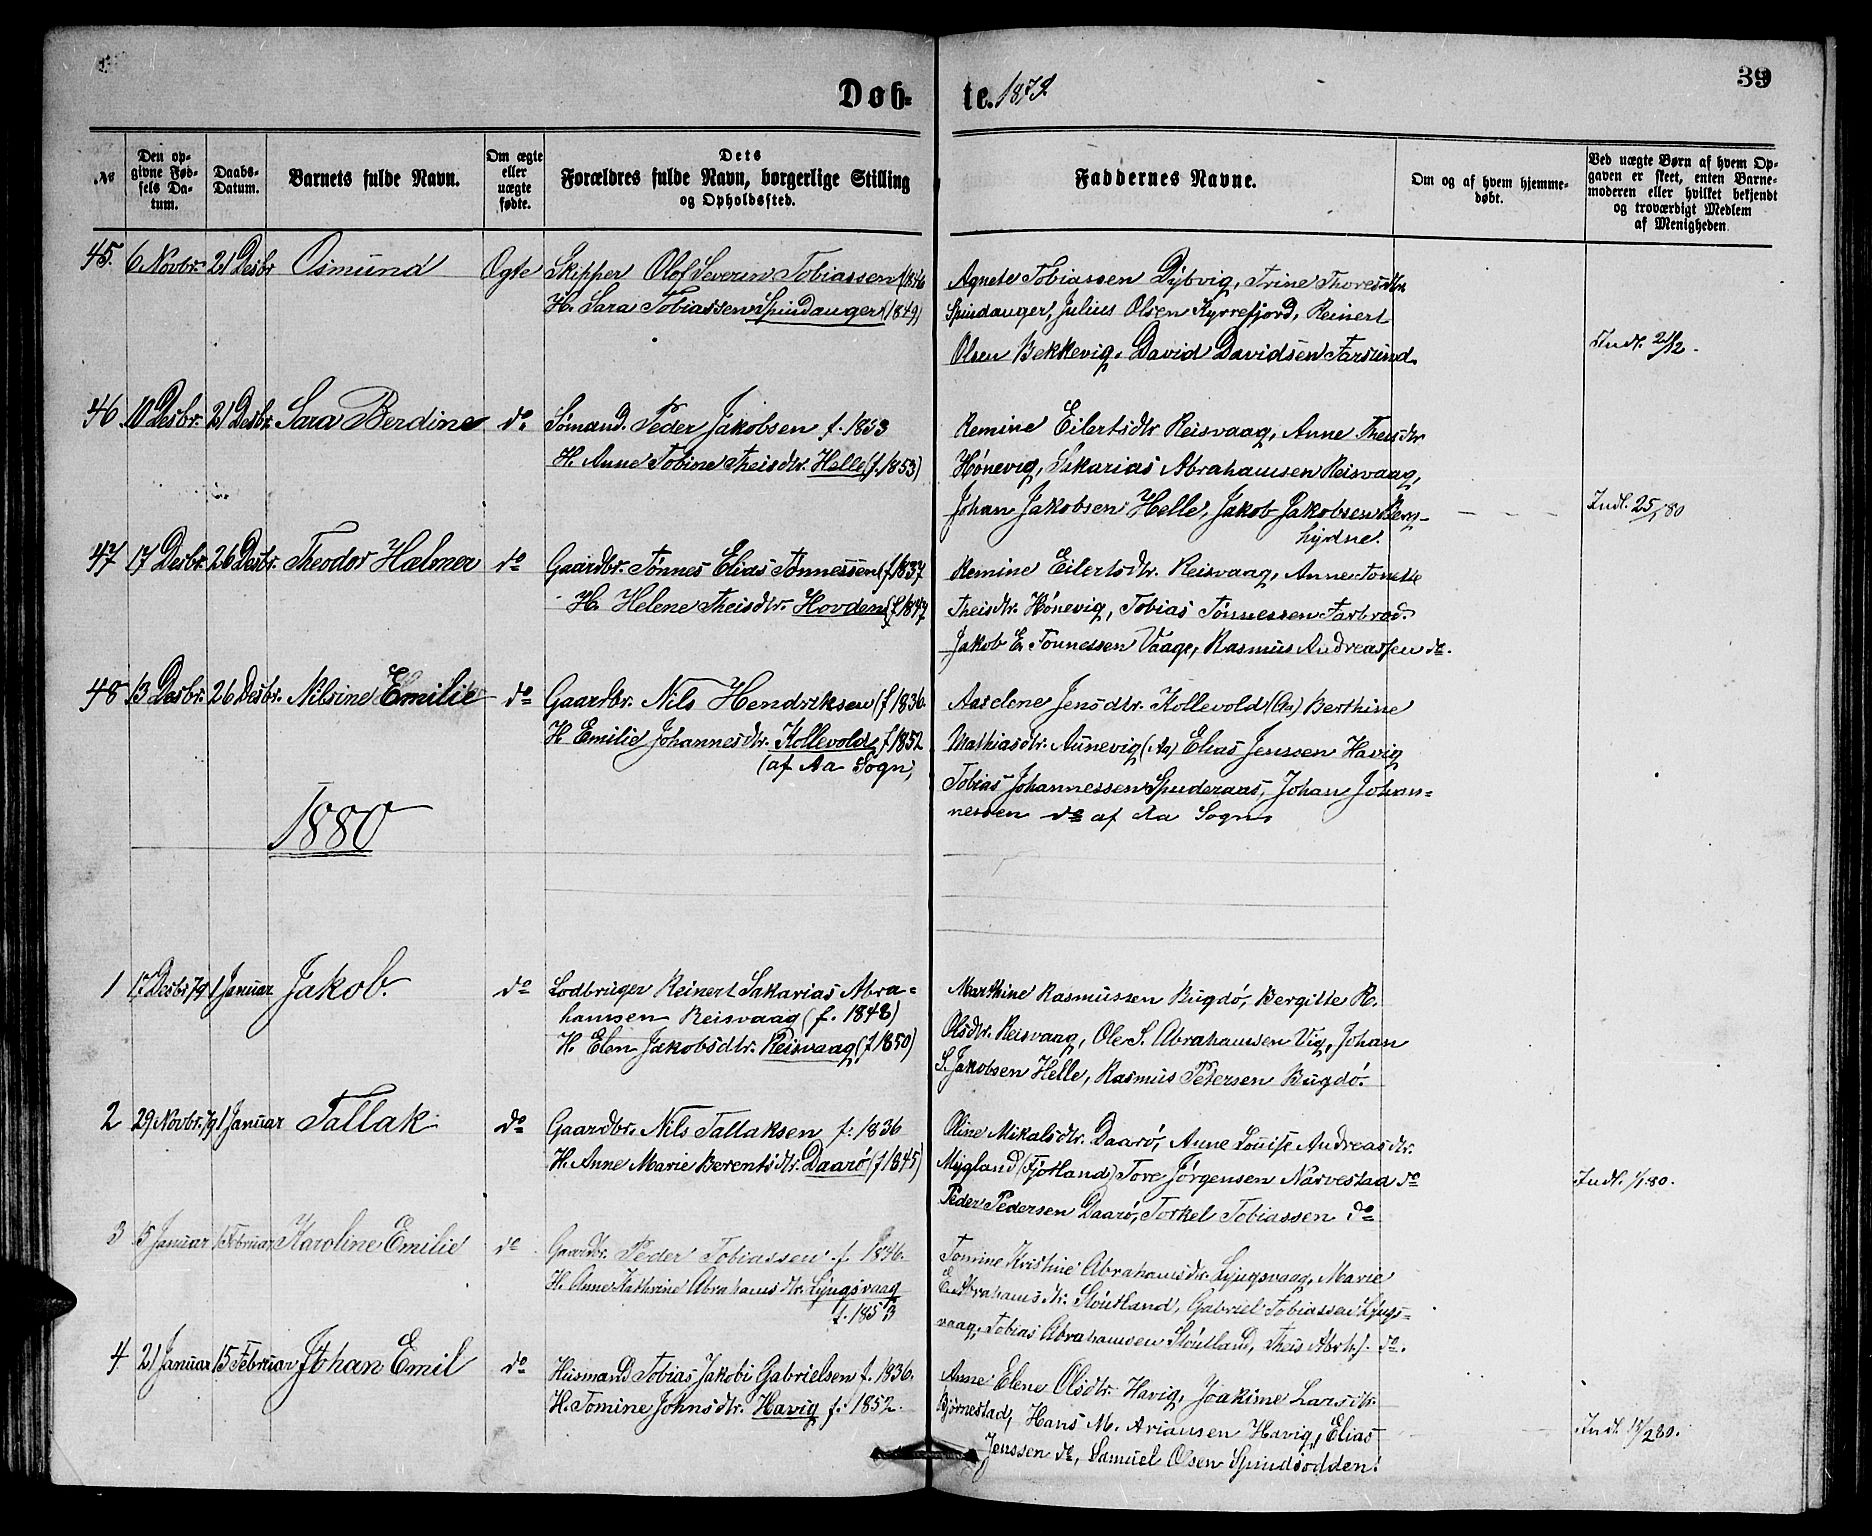 39
Døb- te. 1879
No
Den op-
givne Fød-
sels Da-
tum.
Daabs-
Datum.
Barnets fulde Navn.
Om ægte
eller
uægte
fødte.
Dets
Forældres fulde Navn, borgerlige Stilling
og Opholdssted.
Faddernes Navne.
Om og af hvem hjemme-
døbt.
Ved uægte Børn af hvem Op-
gaven er skeet, enten Barne-
moderen eller hvilket bekjendt
og troværdigt Medlem
af Menigheden.
45. 6 Novbr. 21 Desbr Osmund Ogte Skipper Olof Severin Tobiassen (1846
H. Sara Tobiassen Spindanger (1849)
Agnete Tobiassen Dybvig, Trine Thoresdtr
Spindanger, Julius Olsen Kyrrefjord, Reinert
Olsen Bekkevig, David Davidsen Farsund.
Indl. 21/12.
46 10 Desbr. 21 Desbr. Sara Berdine do Sømand. Peder Jakobsen f. 1853
H. Anne Tobine Theisdtr. Helle (f. 1853)
Remine Eilertsdtr Reisvaag, Anne Theisdtr
Hönevig, Sakarias Abrahamsen Reisvaag,
Johan Jakobsen Helle, Jakob Jakobsen Berg-
hydne.
Indl. 25/1 80
47 17 Desbr. 26 Desbr. Theodor Hælmer do Gaardbr. Tönnes Elias Tønnessen (f 1837
H. Helene Theisdtr. Hovden (f 1847
Remine Eilertsdtr. Reisvaag, Anne Tonette
Theisdtr. Hönevig, Tobias Tönnessen Farbrod.
Jakob E. Tönnessen Vaage, Rasmus Andreassen do.
48 13 Desbr. 26 Desbr. Nilsine Emilie do Gaardbr. Nils Hendriksen (f 1836.
H Emilie Johannesdtr. Kollevold, f 1852
(af Aa Sogn)
Aaselene Jensdtr. Kollevold (Aa) Berthine
Mathiasdtr. Aunevig (Aa) Elias Jenssen Havig
Tobias Johannessen Spinderaas, Johan Johan-
nessen do af Aa Sogn
1880
1 17 Desbr 79 1 Januar Jakob. do Lodbruger Reinert Sakarias Abra-
hamsen Reisvaag (f. 1848)
H. Elen Jakobsdtr. Reisvaag (f 1850)
Marthine Rasmussen Bugdö, Bergitte R.
Olsdtr. Reisvaag, Ole S. Abrahamsen Vig, Johan
S. Jakobsen Helle, Rasmus Petersen Bugdö.
2 29 Novbr. 79 1 Januar Tallak do Gaardbr. Nils Tallaksen f: 1836
H. Anne Marie Berentsdtr. Daarö (f 1845)
Oline Mikalsdtr. Daarö, Anne Louise Andreasdtr.
Mygland (Fjotland) Tore Jörgensen Narvestad do
Peder Pedersen Daarö, Torkel Tobiassen do
Indl. 1/1 80.
3 5 Januar 1 Februar Karoline Emilie do Gaardbr. Peder Tobiassen f. 1846.
H. Anne Kathrine Abrahamsdtr. Ljngsvaag
f. 1853
Tomine Kristine Abrahamsdtr. Ljngsvaag, Marie
E. Abrahamsdtr. Slöutland, Gabriel Tobiassen Ljngs-
vaag, Tobias Abrahamsen Slöutland, Theis Abrh.s. do.
4 21 Januar 15 Februar Johan Emil do Husmand Tobias Jakobi Gabrielsen f. 1836.
H. Tomine Johnsdtr. Havig f. 1852.
Anne Elene Olsdtr. Havig, Joakime Larsdtr.
Björnestad, Hans M. Ariansen Havig, Elias
Jenssen do, Samuel Olsen Spindsodden.
Indl. 15/2 80.